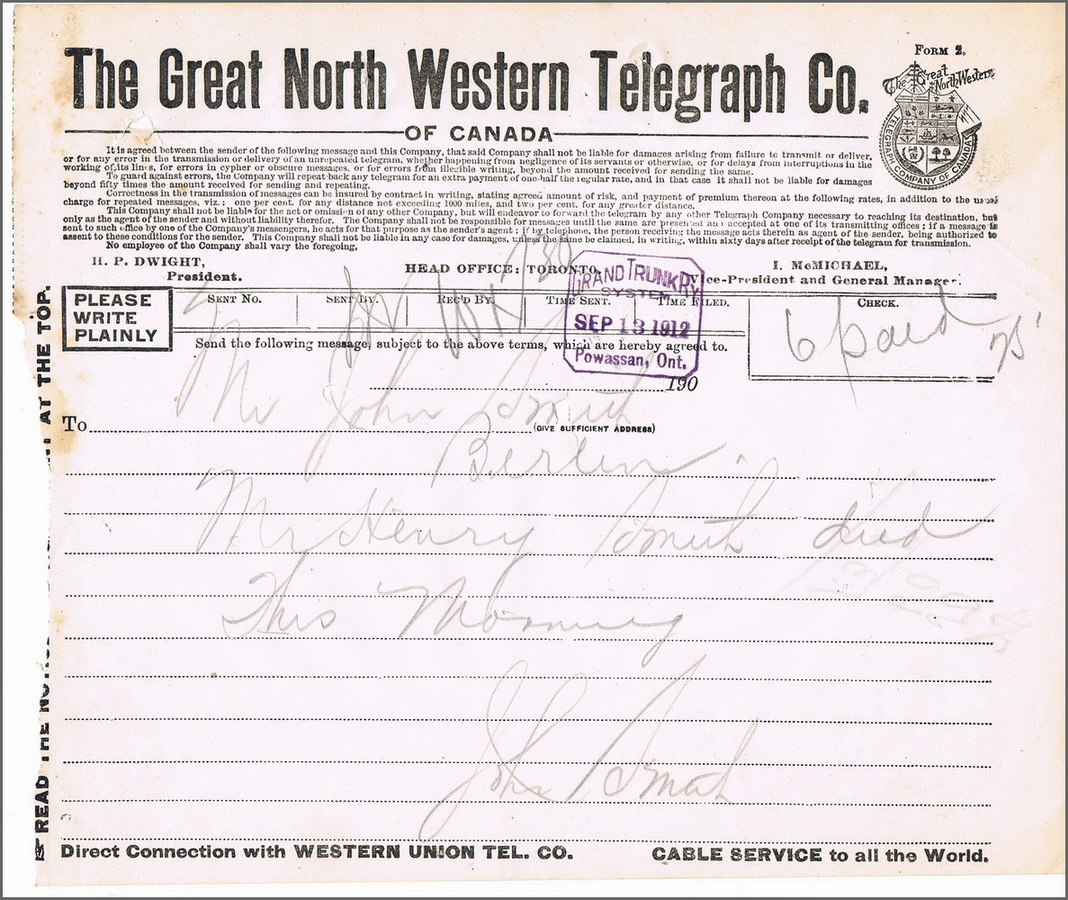 FORM 2.
The Great North Western Telegraph Co.
OF CANADA
The Great North Western
TELEGRAPH COMPANY OF CANADA
It is agreed between the sender of the following message and this Company, that said Company shall not be liable for damages arising from failure to transmit or deliver,
or for any error in the transmission or delivery of an unrepeated telegram, whether happening from negligence of its servants or otherwise, or for delays from interruptions in the
working of its lines, for errors in cypher or obscure messages, or for errors from illegible writing, beyond the amount received for sending the same.
To guard against errors, the Company will repeat back any telegram for an extra payment of one-half the regular rate, and in that case it shall not be liable for damages
beyond fifty times the amount received for sending and repeating.
Correctness in the transmission of messages can be insured by contract in writing, stating agreed amount of risk, and payment of premium thereon at the following rates, in addition to the usual
charge for repeated messages, viz.: one per cent. for any distance not exceeding 1000 miles, and two per cent. for any greater distance.
This Company shall not be liable for the act or omission of any other Company, but will endeavor to forward the telegram by any other Telegraph Company necessary to reaching its destination, but
only as the agent of the sender and without liability therefor. The Company shall not be responsible for messages until the same are presented and accepted at one of its transmitting offices; if a message is
sent to such office by one of the Company's messengers, he acts for that purpose as the sender's agent; if by telephone, the person receiving the message acts therein as agent of the sender, being authorized to
assent to these conditions for the sender. This Company shall not be liable in any case for damages, unless the same be claimed, in writing, within sixty days after receipt of the telegram for transmission.
No employee of the Company shall vary the foregoing.
H. P. DWIGHT,
President.
HEAD OFFICE: TORONTO.
I. McMICHAEL,
Vice-President and General Manager.
PLEASE
WRITE
PLAINLY
SENT No. SENT BY. REC'D BY. TIME SENT. TIME FILED. CHECK.
730
6 paid
GRAND TRUNK RY
SYSTEM
SEP 13 1912
Powassan, Ont.
Send the following message, subject to the above terms, which are hereby agreed to.
190
To Mr John Smith
(GIVE SUFFICIENT ADDRESS)
Berlin
Mr Henry Smith died
This Morning
John Smith
READ THE AT THE TOP.
Direct Connection with WESTERN UNION TEL. CO. CABLE SERVICE to all the World.